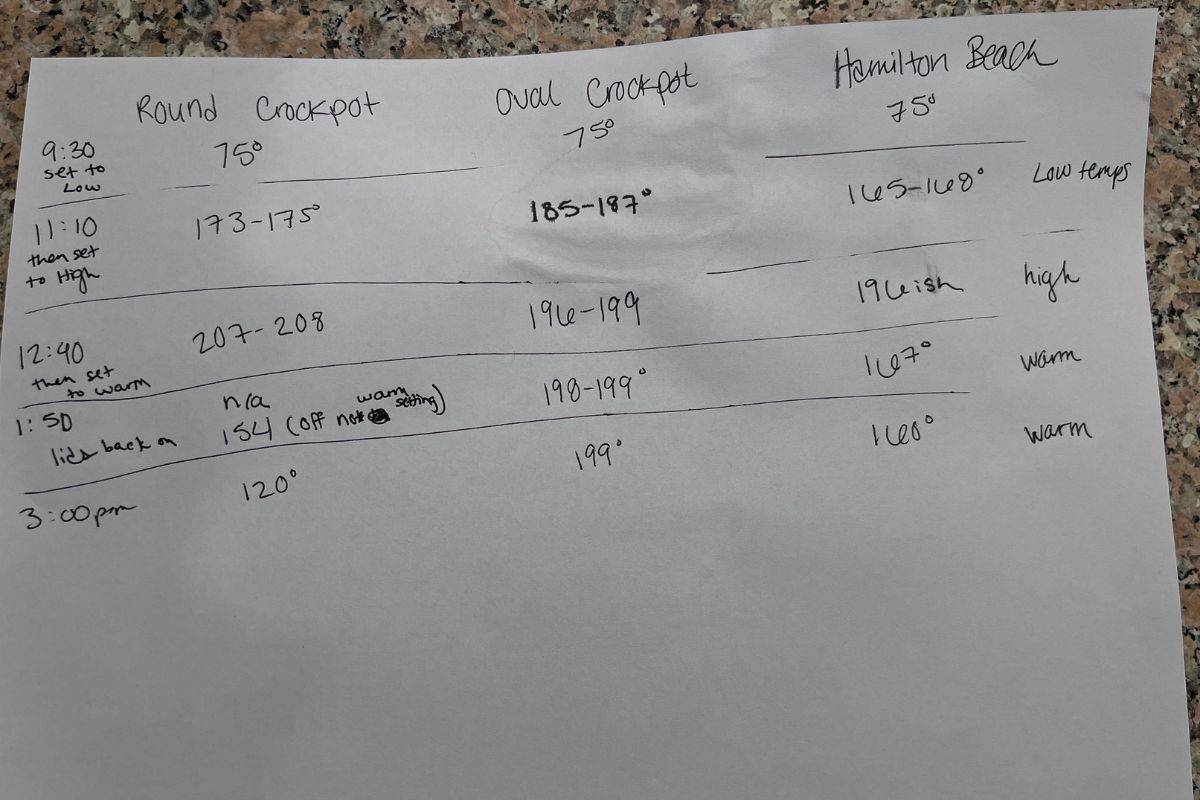 Round Crockpot Oval Crockpot Hamilton Beach
9:30 75° 75° 75°
set to
Low
11:10 173-175° 185-187° 165-168° Low temps
then set
to High
12:40 207-208 196-199 196ish high
then set
to warm
1:50 n/a 198-199° 167° warm
lids back on 154 (off not warm setting)
3:00pm 120° 199° 160° warm